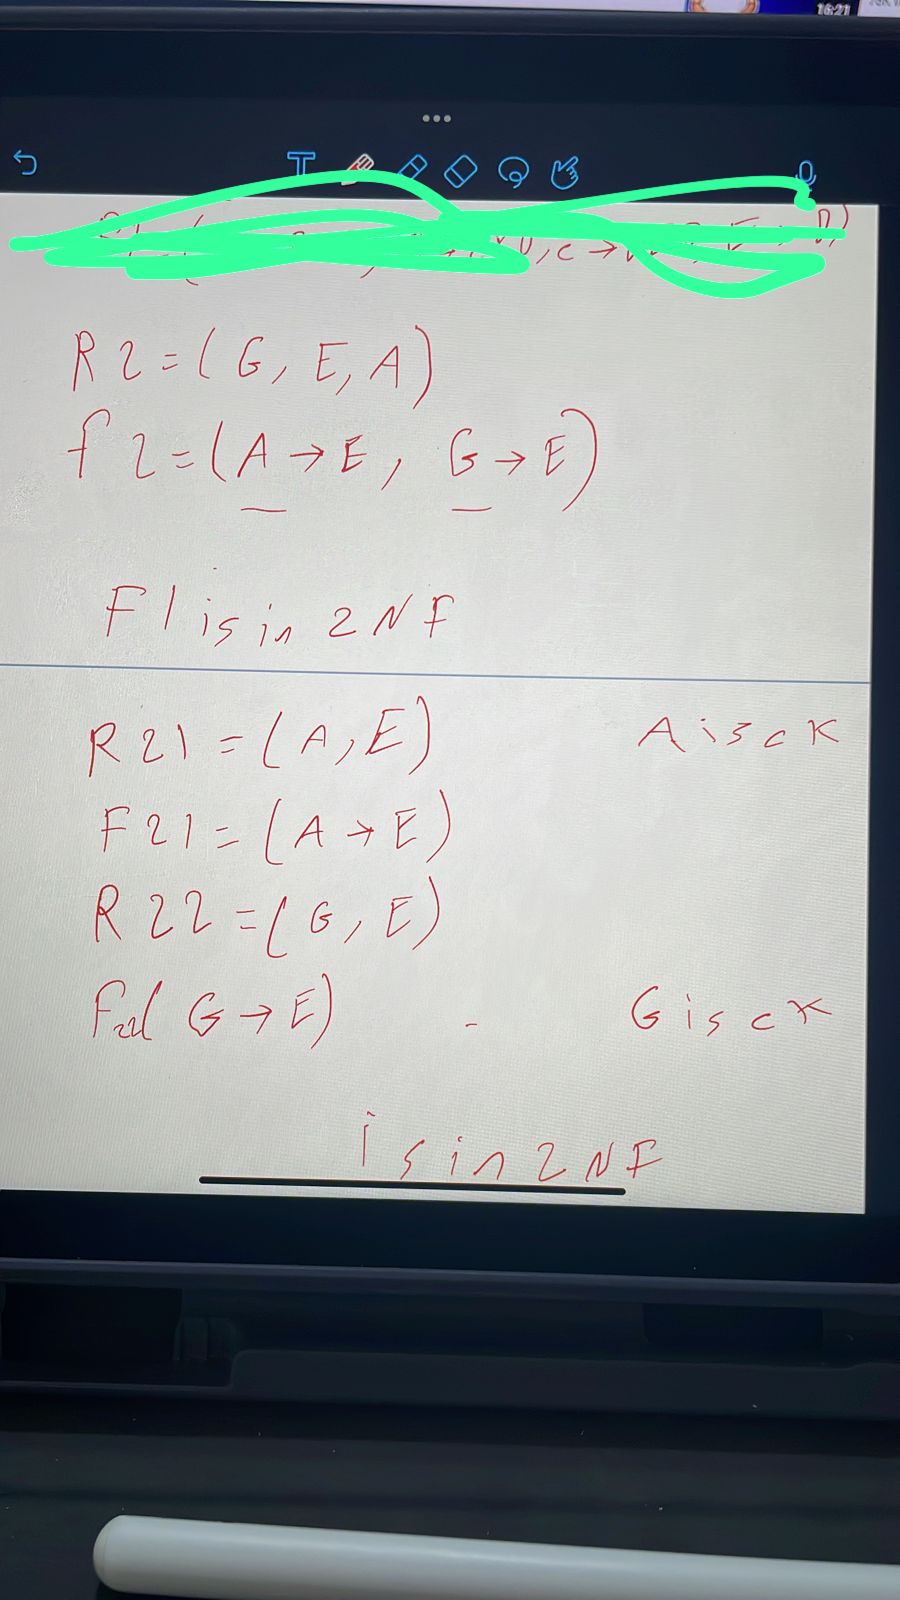 16:21
T
R2=(G, E, A)
f2=(A→E, G→E)
F1 is in 2NF
R21=(A, E) A is ck
F21=(A→E)
R22=(G, E)
F22(G→E) G is ck
is in 2NF